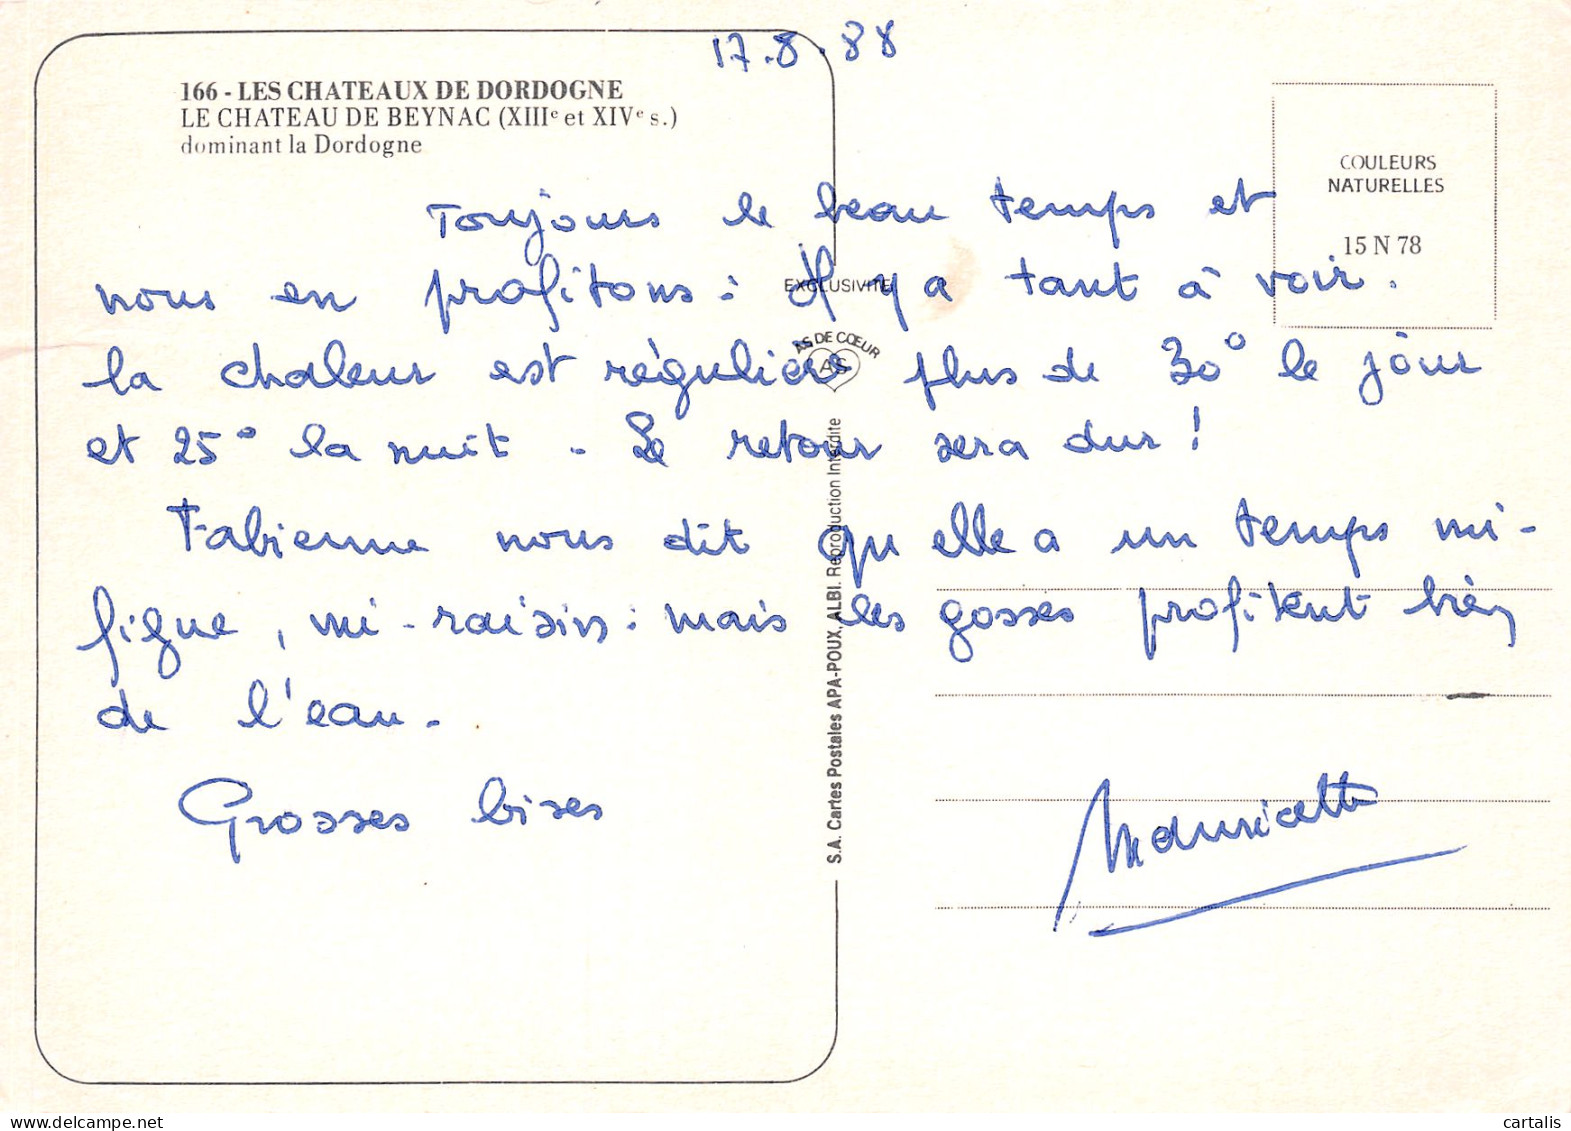 17.8.88
166 - LES CHATEAUX DE DORDOGNE
LE CHATEAU DE BEYNAC (XIIIe et XIVe s.)
dominant la Dordogne
COULEURS
NATURELLES
15 N 78
Toujours le beau temps et
nous en profitons : Il y a tant à voir.
la chaleur est régulière plus de 30° le jour
et 25° la nuit - Le retour sera dur !
Fabienne nous dit qu'elle a un temps mi-
figue, mi-raisin : mais les gosses profitent bien
de l'eau.
Grosses bises
Mauricette
EXCLUSIVITE
AS DE CŒUR
AS
S.A. Cartes Postales APA-POUX, ALBI. Reproduction Interdite
cartalis